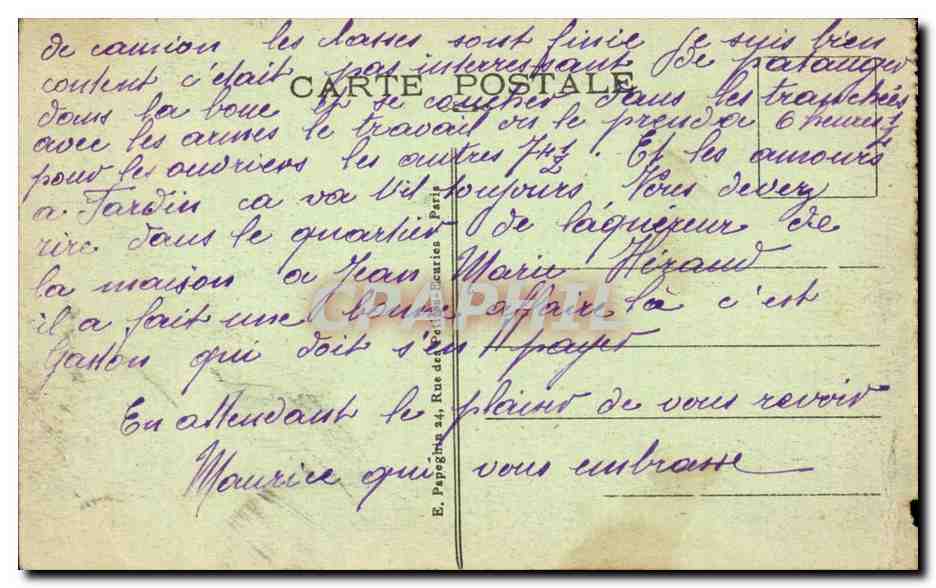 de camion les classes sont finie je suis bien
content c'était pas interressant de patauger
CARTE POSTALE
dans la boue et se coucher dans les tranchées
avec les armes le travail on le prend a 6 heures 1/2
pour les ouvriers les autres 7h 1/2. Et les amours
a Jardin ca va t'il toujours. Vous devez
rire dans le quartier de l'aquéreur de
la maison a Jean Marie Héraud
il a fait une bonne affaire là c'est
Gaston qui doit s'en payer
En attendant le plaisir de vous revoir
Maurice qui vous embrasse
E. Papeghin 24, Rue des Petites-Ecuries - Paris
CPAPHIL